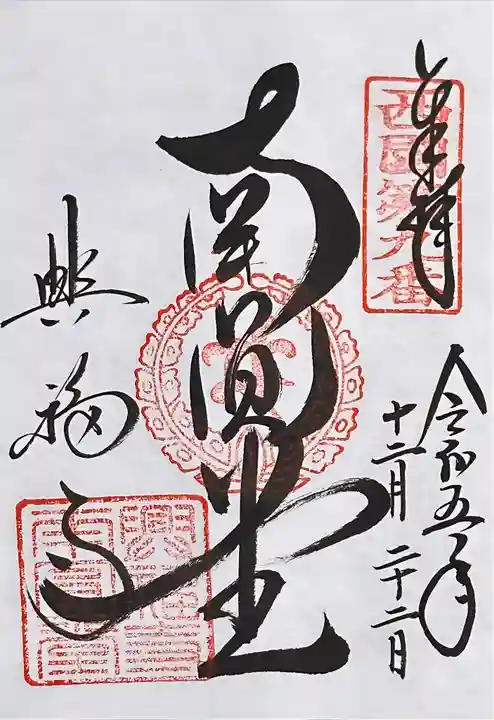 奉拝
西国第九番
令和五年
十二月二十二日
南圓堂
興福寺